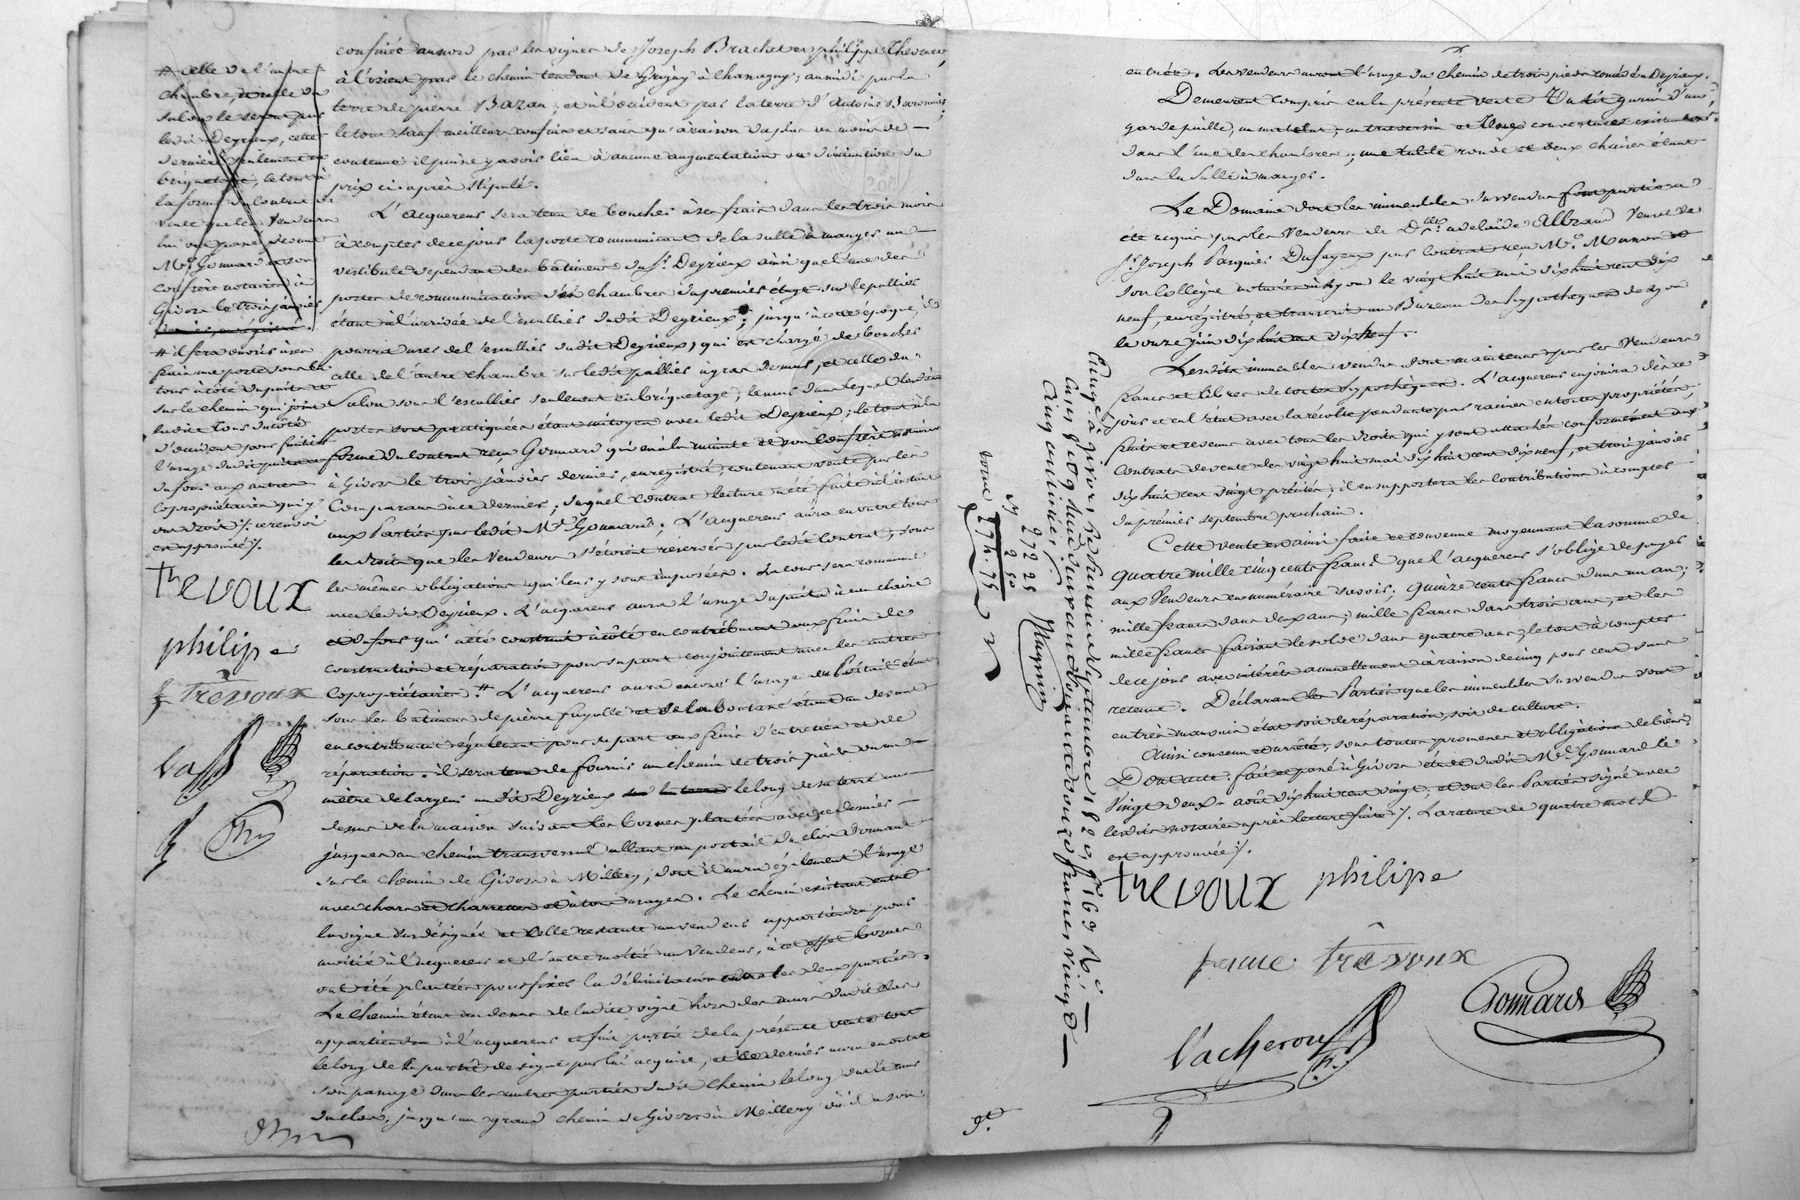 confinée au nord par les vignes de Joseph Brachet et philippe Thevenet,
à l'orient par le chemin tendant de Grigny à Chassagny; au midi par la
terre de pierre Bazan, et à l'occident par la terre d'antoine
le tout sauf meilleurs confins et sans qu'à raison du plus ou moins de
contenue il puisse y avoir lieu à aucune augmentation ou diminution du
prix ci-après stipulé.
L'acquereur sera tenu de boucher à ses frais dans les trois mois
à compter de ce jour la porte communicant de la salle à manger au
vestibule dépendant des bâtimens du Sr. Deyrieux ainsi que l'une des
portes de communication des chambres du premier étage sur le pallier
étant à l'arrivée de l'escallier dudit Deyrieux; jusqu'à cette époque, il
pourra user de l'escallier dudit Deyrieux, qui est chargé de boucher
celle de l'autre chambre sur ledit pallier
Salon sous l'escallier seulement en briquetage; le mur dans lequel lesdites
portes sont pratiquées étant mitoyen avec ledit Deyrieux; le tout à la
forme du contrat reçu Gonnard qui en a la minute et son confrère notaires
à Givors le trois janvier dernier, enregistré, contenant vente par les
Comparans à ce dernier, duquel contrat lecture a été faite à l'instant
aux Parties par ledit Me. Gonnard. L'acquereur aura en outre tous
les droits que les Vendeurs s'étoient réservés par ledit Contrat, sous
les mêmes obligations qui leur y sont imposées. La cour sera commune
avec ledit Deyrieux. L'acquereur aura l'usage du puits à eau claire
et du four qui a été construit à côté en contribuant aux frais de
construction et réparation pour sa part conjointement avec les autres
Copropriétaires. # L'acquereur aura encore l'usage du Portail étant
sous les bâtimens de pierre fayolle
en contribuant également pour sa part aux frais d'entretien et de
réparation. il sera tenu de fournir un chemin de trois pieds ou un
mètre de largeur audit Deyrieux le long de sa terre au
dessus de la maison suivant les bornes plantées avec ce dernier
jusques au chemin transversal allant au portail du clos donnant
sur le chemin de Givors à Millery, dont il aura également l'usage
avec chars et charrettes et à tous usages. Le chemin existant entre
la vigne susdésignée et celle restante aux vendeurs appartiendra pour
moitié à l'acquereur et l'autre moitié aux Vendeurs, à cet effet bornes
ont été plantées pour fixer la délimitation entre les deux parties.
Le chemin étant au dessus de ladite vigne hors des murs dudit clos
appartiendra à l'acquereur et fait partie de la présente vente tout
le long de la partie de vigne par lui acquise, et ce dernier aura en outre
son passage dans les autres parties dudit chemin le long dudit mur
du clos, jusqu'au grand chemin de Givors à Millery où il a son
# Celle de l'autre
chambre, et celle du
salon le seront par
ledit Deyrieux, cette
dernière seulement en
briquetage, le tout à
la forme du contrat de
vente que les Vendeurs
lui ont passé devant
Me. Gonnard et son
confrère notaires à
Givors le trois janvier
# il fera ouvrir à ses
frais une porte
sur le chemin qui joint
d'occident pour faciliter
l'usage dudit puits et
du four aux autres
Copropriétaires qui y
ont droit. ce renvoi
est approuvé.
thevoux
philipe
trèvoux
entrée. Les vendeurs auront l'usage du chemin de trois pieds Deyrieux.
Demeurent compris en la présente vente un lit garni d'une
garde paille, un matelas, un traversin et deux couvertures existans
dans l'une des chambres; une table ronde et deux chaises étant
dans la salle à manger.
Le Domaine dont les immeubles survendus font partie a
été acquis par les Vendeurs de Dlle. adelaïde Allozand veuve de
Sr. Joseph Dufayeux par contrat reçu Me.
son collègue notaires à Lyon le vingt huit mai dix huit cent dix
neuf, enregistré, et transcrit au Bureau des hypothèques de Lyon
le onze juin dix huit cent dix neuf.
Lesdits immeubles vendus sont maintenus par les Vendeurs
francs et libres de toutes hypothèques. L'acquereur en jouira dès ce
jour et en l'état avec la récolte pendante par racines en toute propriété,
fruits et revenus avec tous les droits qui y sont attachés conformément aux
Contrats de vente des vingt huit mai dix huit cent dix neuf, et trois janvier
dix huit cent vingt précités; il en supportera les contributions à compter
du premier septembre prochain.
Cette vente est ainsi faite et convenue moyennant la somme de
quatre mille cinq cents francs que l'acquereur s'oblige de payer
aux Vendeurs en numéraire savoir, quinze cents francs dans un an;
mille francs dans deux ans; mille francs dans trois ans, et les
mille francs faisant le solde dans quatre ans; le tout à compter
de ce jour avec intérêts annuellement à raison de cinq pour cent sans
retenue. Déclarant les Parties que les immeubles survendus sont
en très mauvais état soit de réparation, soit de culture.
Ainsi convenu et arrêté, sous toutes promesses et obligations de biens.
Dont acte: fait et passé à Givors étude dudit Me. Gonnard le
vingt deux août dix huit cent vingt, et ont les Parties signé avec
lesdits notaires après lecture faite. La rature de quatre mots
est approuvée.
thevoux philipe
trèvoux
Gonnard
Vacheron
Enregé. à Givors le huit Septembre 1820, fo. 169 Ro.
cases 8 et 9 reçu deux cent soixante douze francs vingt
cinq centimes.
272 25
2 50
274. 75
Magnin